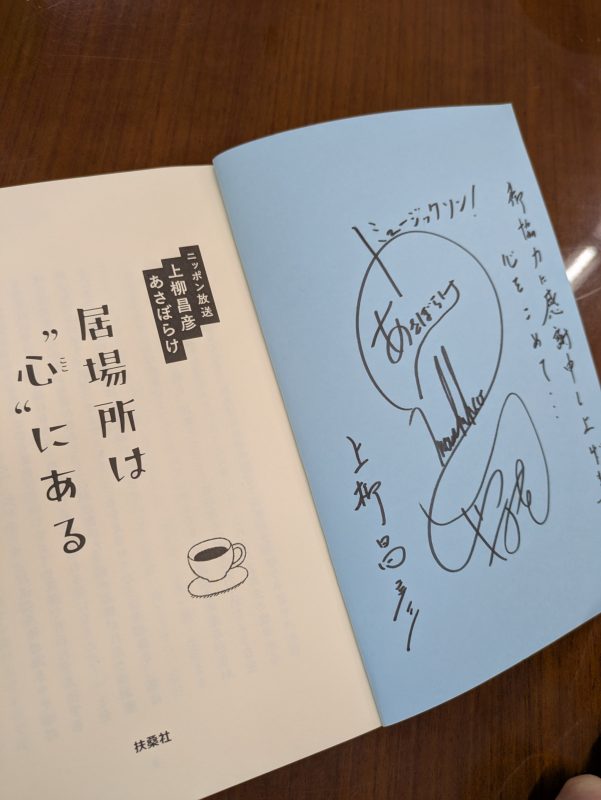 ニッポン放送
上柳昌彦
あさぼらけ
居場所は
”心“にある
ここ
扶桑社
御協力に感謝申し上げま
心をこめて…
ミュージックソン!
あさぼらけ
上柳昌彦